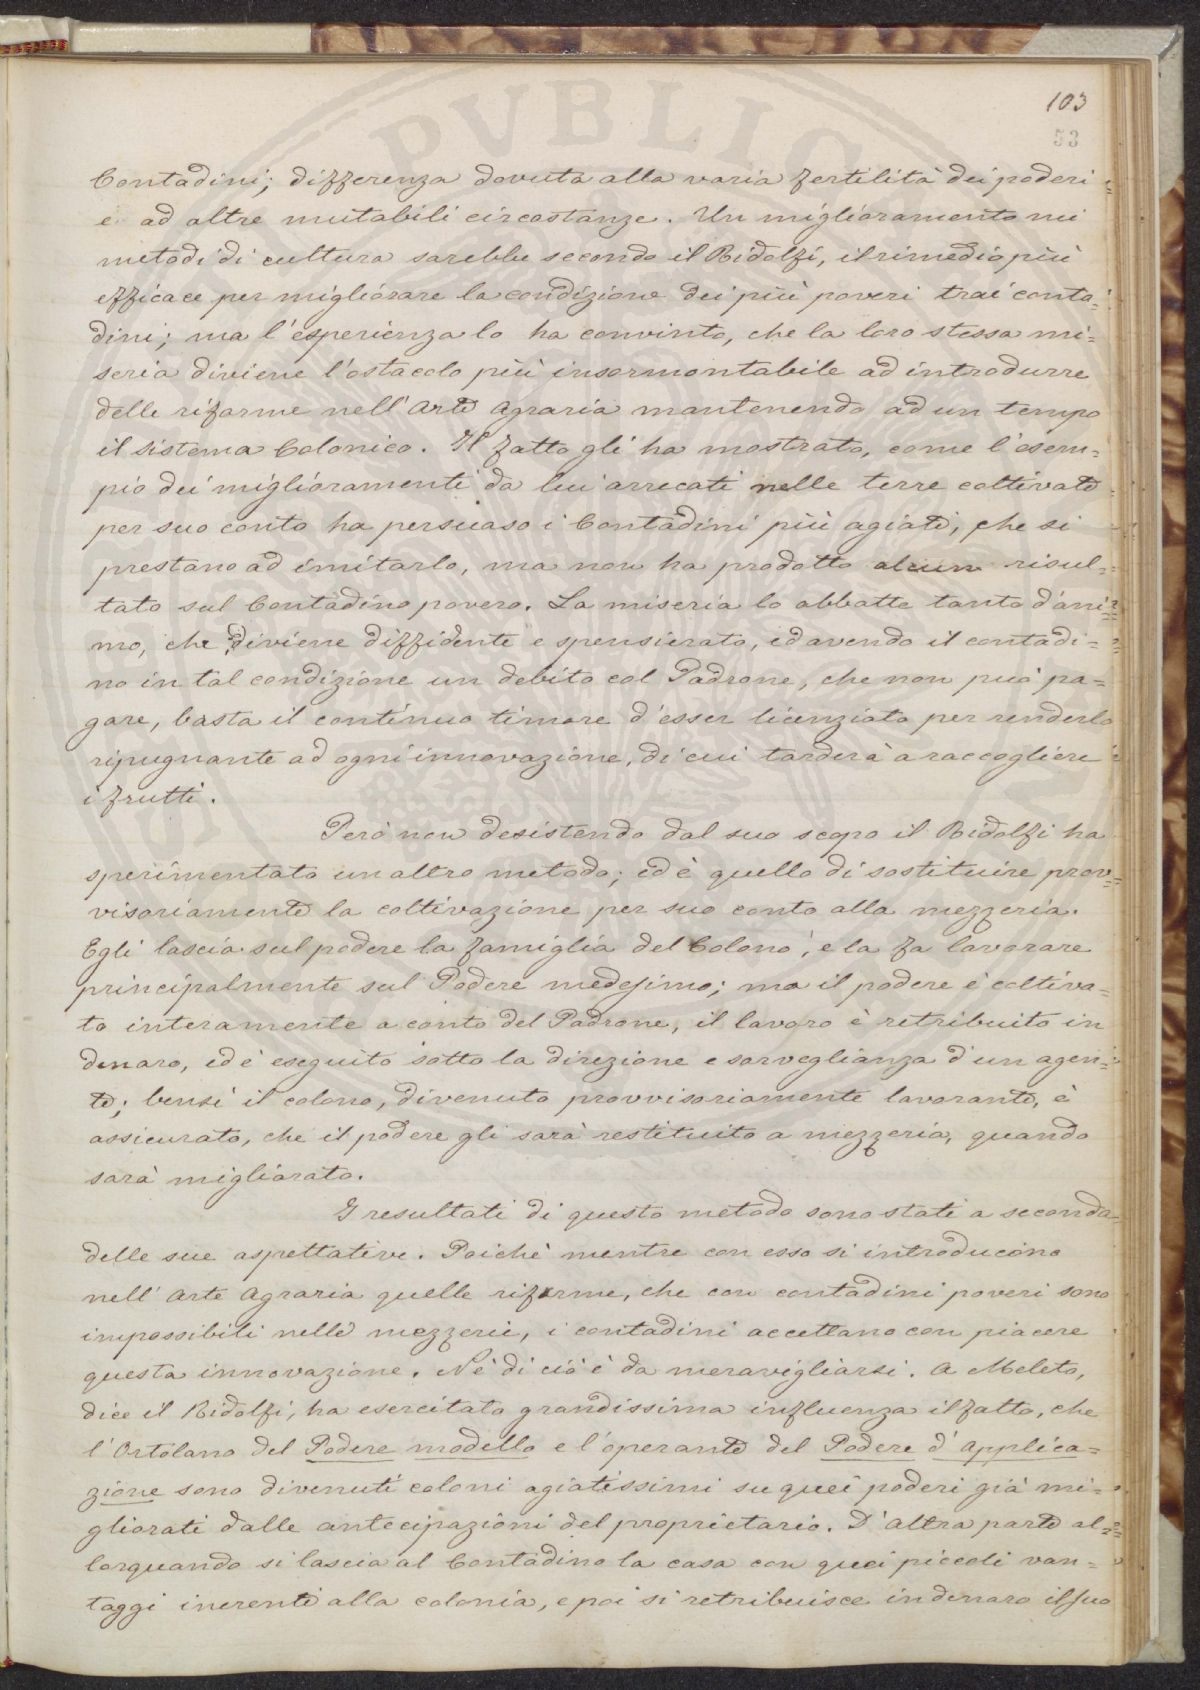 103
53
PVBLIC
Contadini; differenza dovuta alla varia fertilità dei poderi
e ad altre mutabili circostanze. Un miglioramento nei
metodi di cultura sarebbe secondo il Ridolfi, il rimedio più
efficace per migliorare la condizione dei più poveri trai conta=
dini; ma l'esperienza lo ha convinto, che la loro stessa mi=
seria diviene l'ostacolo più insormontabile ad introdurre
delle riforme nell'Arte Agraria mantenendo ad un tempo
il sistema Colonico. Il fatto gli ha mostrato, come l'esem=
pio dei miglioramenti da lui arrecati nelle terre coltivate
per suo conto ha persuaso i Contadini più agiati, che si
prestano ad imitarlo, ma non ha prodotto alcun risul=
tato sul Contadino povero. La miseria lo abbatte tanto d'ani=
mo, che diviene diffidente e spensierato, ed avendo il contadi=
no in tal condizione un debito col Padrone, che non può pa=
gare, basta il continuo timore d'esser licenziato per renderlo
ripugnante ad ogni innovazione, di cui tarderà a raccogliere
i frutti.
Però non desistendo dal suo scopo il Ridolfi ha
sperimentato un altro metodo; ed è quello di sostituire prov=
visoriamente la coltivazione per suo conto alla mezzeria.
Egli lascia sul podere la famiglia del Colono, e la fa lavorare
principalmente sul Podere medesimo; ma il podere è coltiva=
to interamente a conto del Padrone, il lavoro è retribuito in
denaro, ed è eseguito sotto la direzione e sorveglianza d'un agen=
te; bensì il colono, divenuto provvisoriamente lavorante, è
assicurato, che il podere gli sarà restituito a mezzeria, quando
sarà migliorato.
I resultati di questo metodo sono stati a seconda
delle sue aspettative. Poichè mentre con esso si introducono
nell'Arte Agraria quelle riforme, che con contadini poveri sono
impossibili nelle mezzerie, i contadini accettano con piacere
questa innovazione. Nè di ciò è da meravigliarsi. A Meleto,
dice il Ridolfi, ha esercitato grandissima influenza il fatto, che
l'Ortolano del Podere modello e l'operante del Podere d'Applica=
zione sono divenuti coloni agiatissimi su quei poderi già mi=
gliorati dalle antecipazioni del proprietario. D'altra parte al=
lorquando si lascia al Contadino la casa con quei piccoli van=
taggi inerenti alla colonia, e poi si retribuisce in denaro il suo